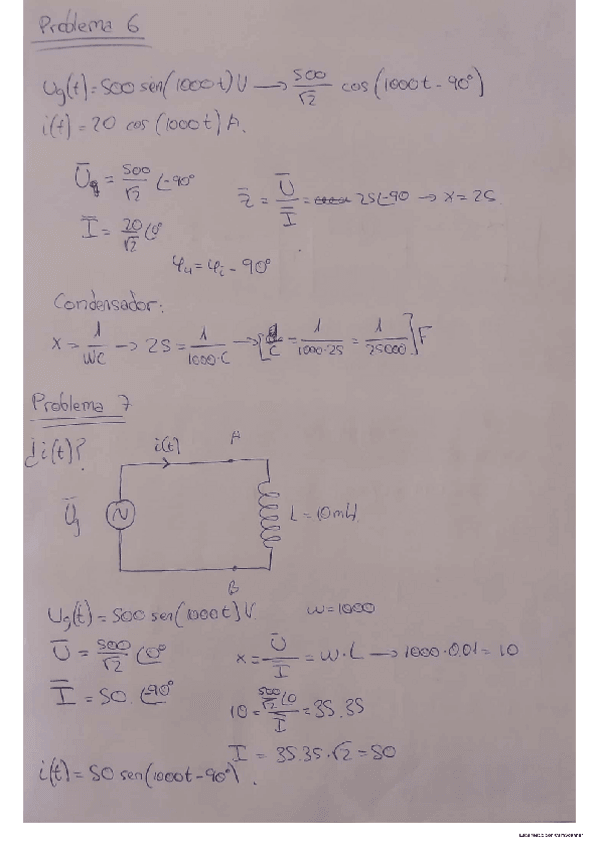 Problema 6
Ug(t)=500 sen(1000t)V → 500/√2 cos(1000t-90°)
i(t)=20 cos(1000t) A.
Ūg = 500/√2 ∠-90°
z̄ = Ū/Ī = 25∠-90 → x=25
Ī = 20/√2 ∠0°
φu=φi-90°
Condensador:
x = 1/WC → 25 = 1/1000·C → [C = 1/1000·25 = 1/25000] F
Problema 7
¿i(t)?
i(t)
A
Ūg
L=10mH.
B
Ug(t)=500 sen(1000t)V. w=1000
Ū = 500/√2 ∠0°
x = Ū/Ī = w·L → 1000·0,01 = 10
Ī = 50 ∠-90°
10 = 500/√2 ∠0 / Ī = 35.35
I = 35.35·√2 = 50
i(t)=50 sen(1000t-90°).